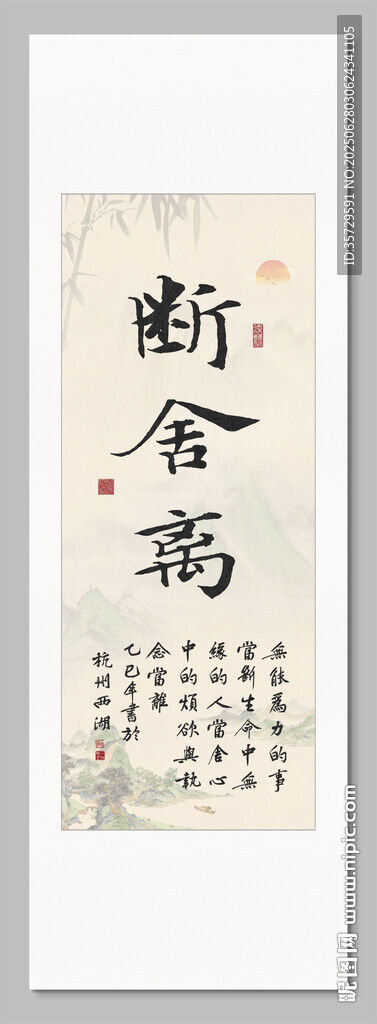 断
舍
离
無能爲力的事
當斷生命中無
緣的人當舍心
中的煩欲與執
念當離
乙巳年書於
杭州西湖
ID:35729591 NO:20250628030624341105
昵图网 www.nipic.com